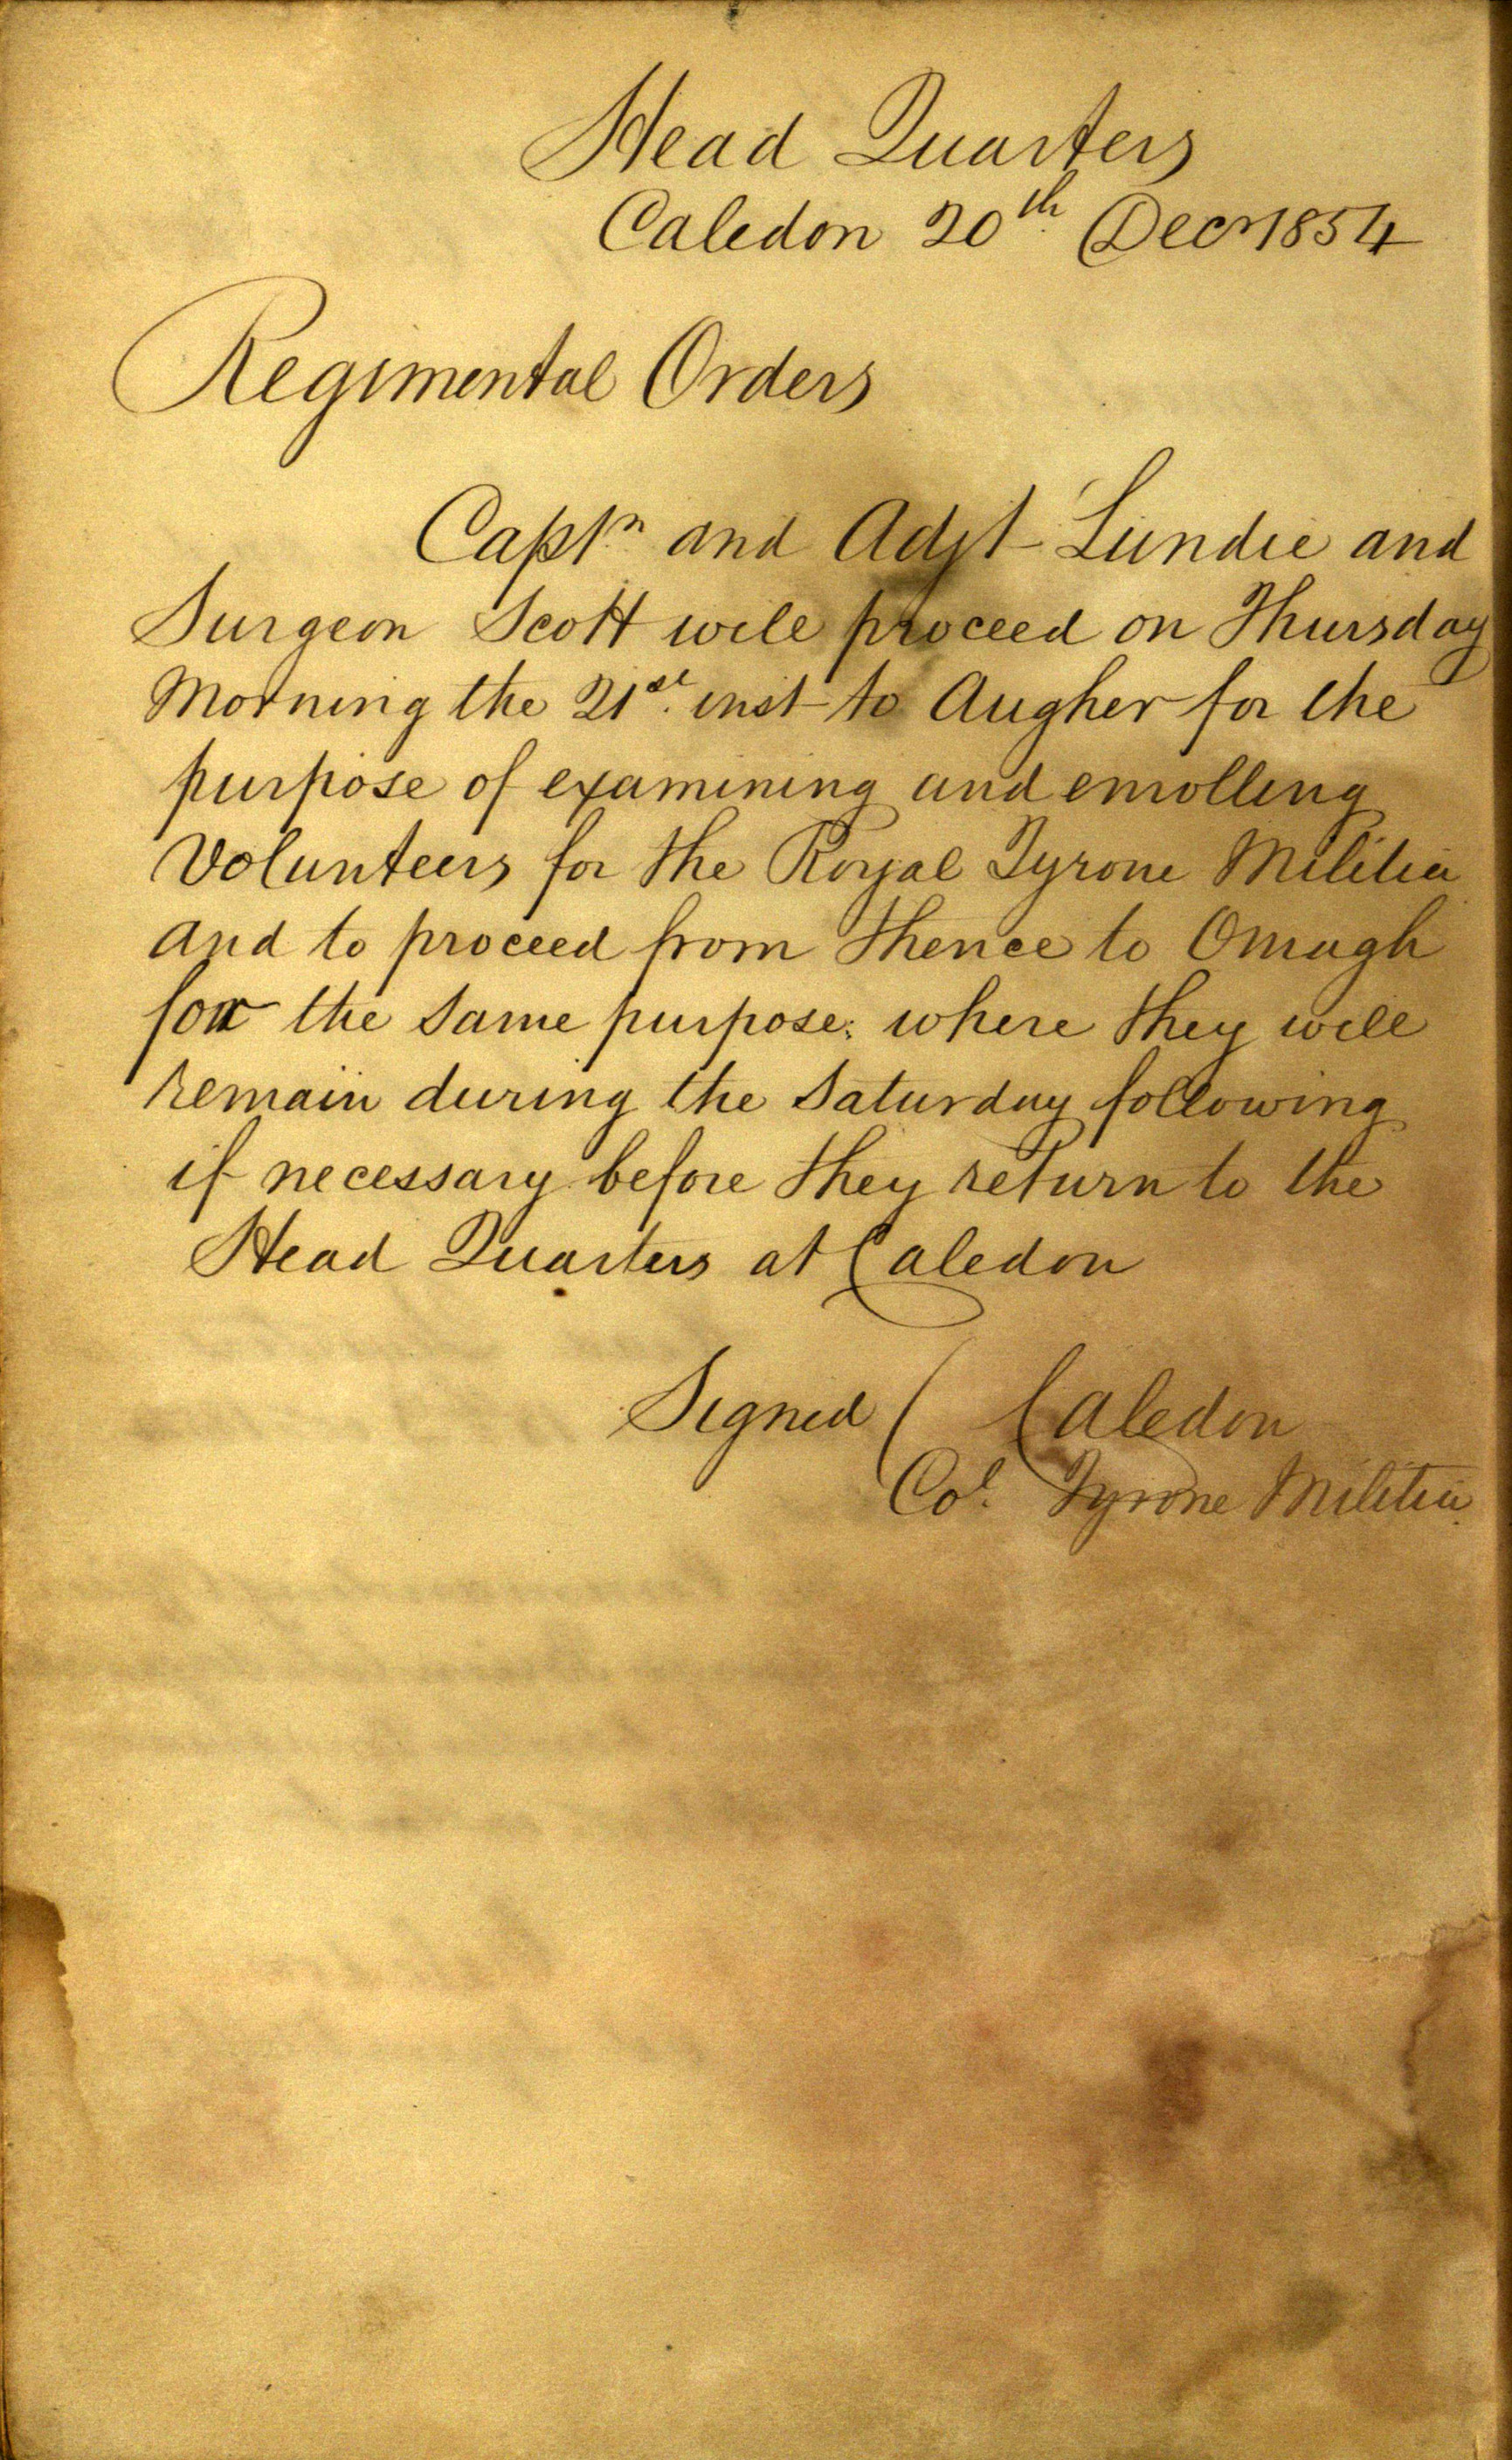 Head Quarters
Caledon 20th. Decr 1854
Regimental Orders
Captn. and Adjt Lundie and
Surgeon Scott will proceed on Thursday
Morning the 21st. inst to Augher for the
purpose of examining and enrolling
Volunteers for the Royal Tyrone Militia
and to proceed from thence to Omagh
for the same purpose; where they will
remain during the Saturday following
if necessary before they return to the
Head Quarters at Caledon
Signed ( Caledon
Col. Tyrone Militia